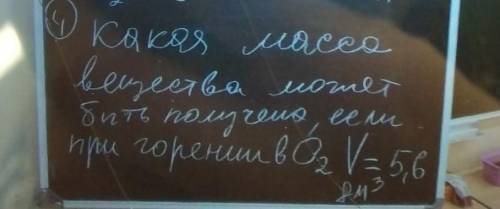 ④ Какая масса
вещества может
быть получена, если
при горении в O₂ V = 5,6
дм³